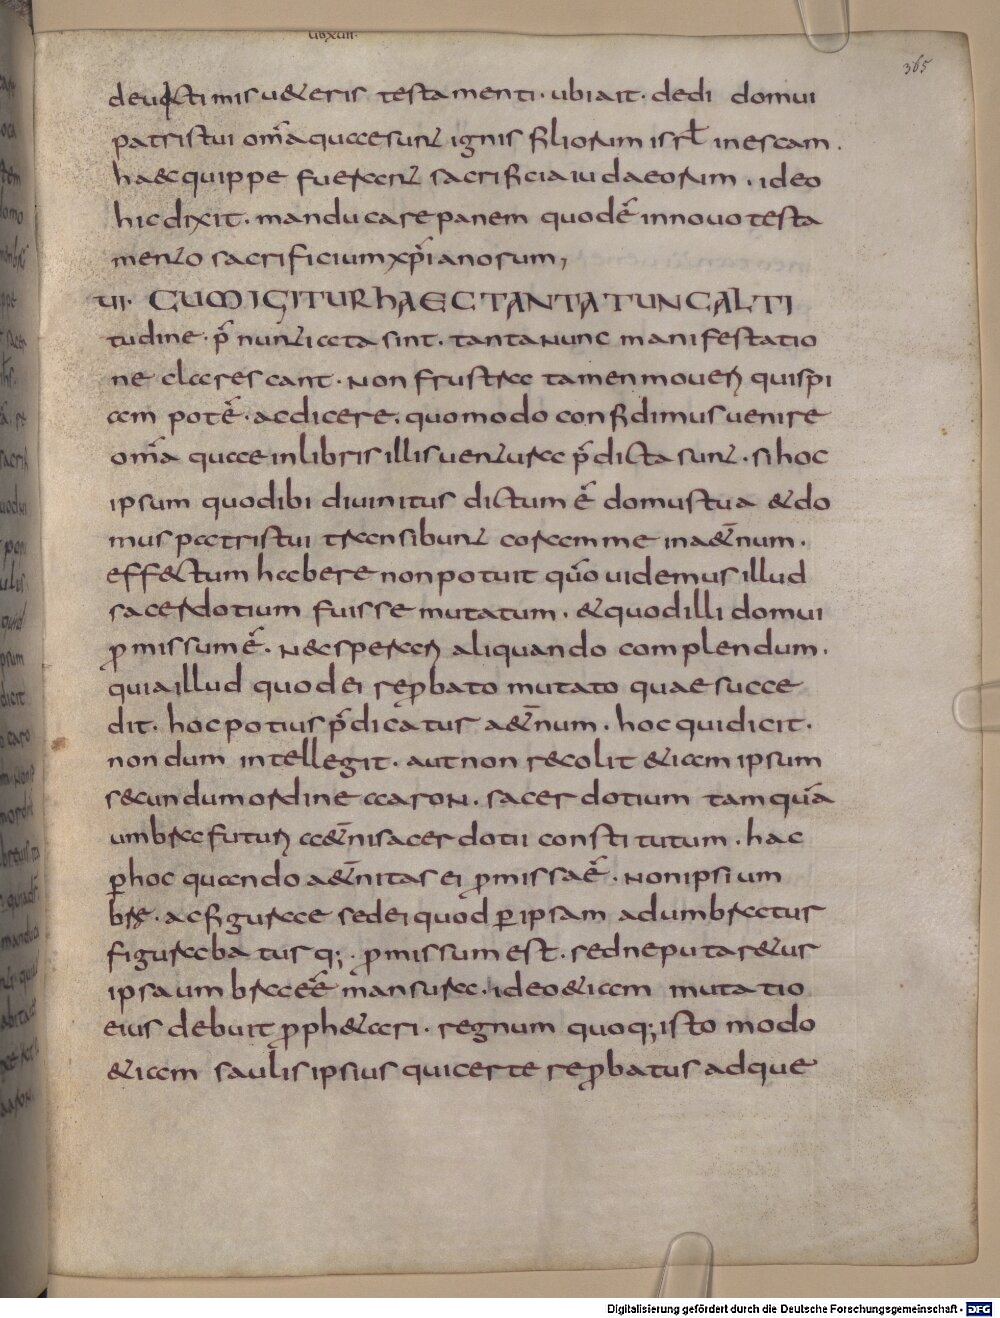 lib xvii.
365
deuictimis ueteris testamenti. ubi ait. dedi domui
patris tui om̄a quae sunt ignis filiorum isrl in escam.
haec quippe fuerant sacrificia iudaeorum. ideo
hic dixit. manducare panem quod ē in nouo testa
mento sacrificium xp̄ianorum,
VI. CUM IGITUR HAEC TANTA TUNC ALTI
tudine. p̄nuntiata sint. tanta nunc manifestatio
ne clarescant. non frustra tamen moueri quispi
am pot ē. ac dicere. quomodo confidimus uenire
om̄a quae in libris illis uentura p̄dicta sunt. si hoc
ipsum quod ibi diuinitus dictum ē domus tua & do
mus patris tui transibunt coram me in a&̄num.
effectum habere non potuit qūo uidemus illud
sacerdotium fuisse mutatum. & quod illi domui
ꝓmissum ē. nec speratur aliquando complendum.
quia illud quod ei reꝓbato mutato quae succe
dit. hoc potius p̄dicatus a&̄num. hoc qui dicit.
nondum intellegit. aut non recolit &iam ipsum
secundum ordine aaron. sacerdotium tamquā
umbra futuri a&̄ni sacerdotii constitutum. hac
ꝑ hoc quando a&̄nitas ei ꝓmissa ē. non ipsi um
brę. ac figurae sed ei quod ꝑ ipsam adumbratus
figurabatusq;. ꝓmissum est. sed ne putar&us
ipsa umbra eē mansura. ideo &iam mutatio
eius debuit ꝓph&ari. regnum quoq; isto modo
&iam saulis ipsius qui certe reꝓbatus adque
Digitalisierung gefördert durch die Deutsche Forschungsgemeinschaft - DFG